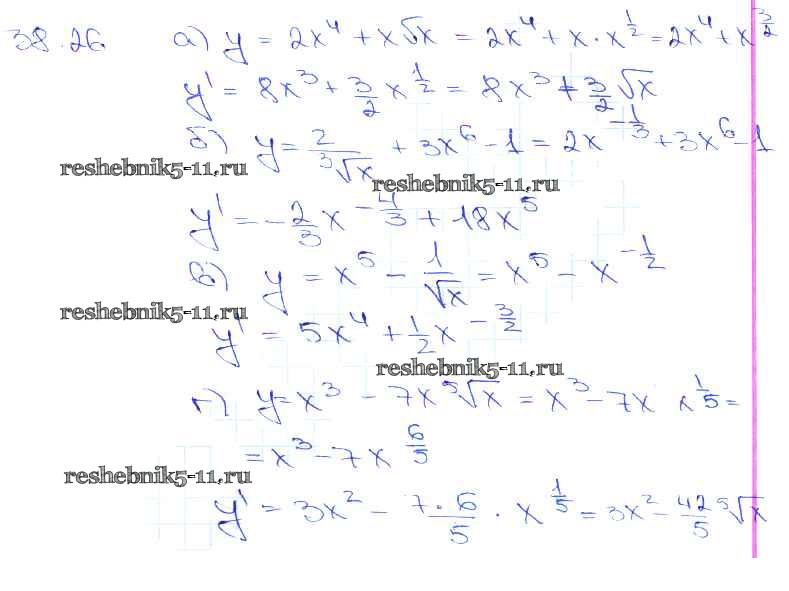 38.26. а) y = 2x⁴ + x√x = 2x⁴ + x · x^(1/2) = 2x⁴ + x^(3/2)
y' = 8x³ + 3/2 x^(1/2) = 8x³ + 3/2 √x
б) y = 2/∛x + 3x⁶ - 1 = 2x^(-1/3) + 3x⁶ - 1
reshebnik5-11.ru
reshebnik5-11.ru
y' = -2/3 x^(-4/3) + 18x⁵
в) y = x⁵ - 1/√x = x⁵ - x^(-1/2)
reshebnik5-11.ru
y' = 5x⁴ + 1/2 x^(-3/2)
reshebnik5-11.ru
г) y = x³ - 7x ⁵√x = x³ - 7x x^(1/5) =
= x³ - 7x^(6/5)
reshebnik5-11.ru
y' = 3x² - (7·6)/5 · x^(1/5) = 3x² - 42/5 ⁵√x